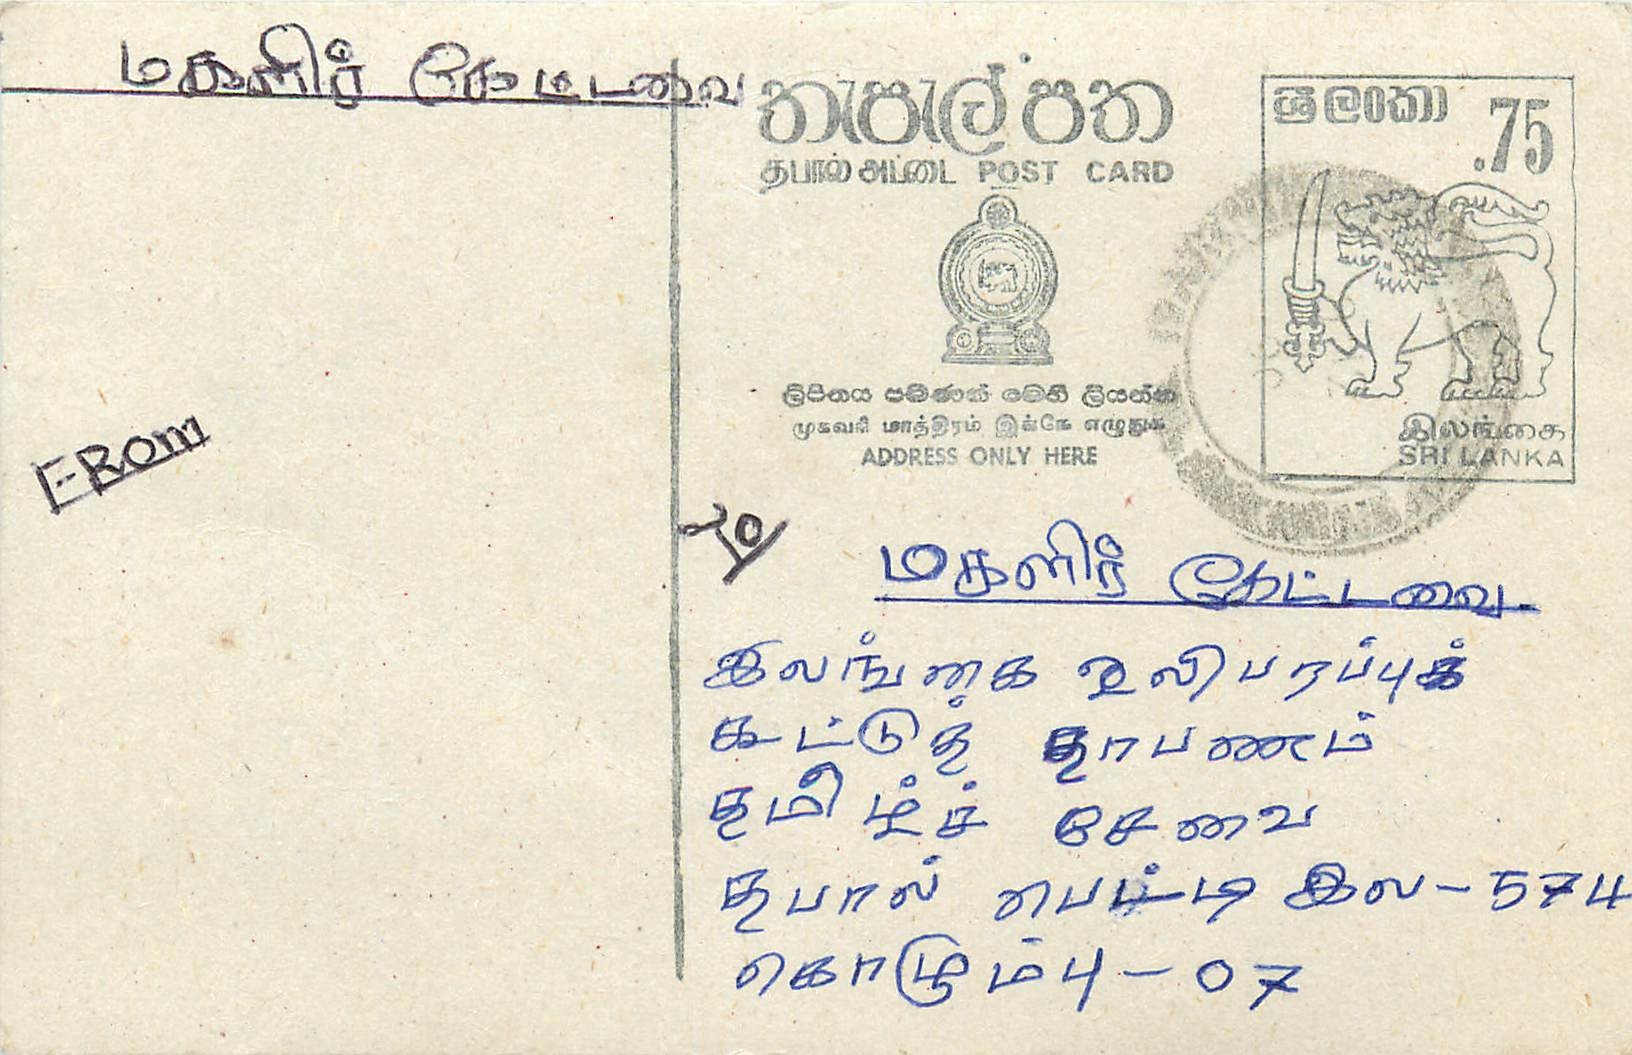 மகளிர் கேட்டவை
තැපැල් පත
தபால் அட்டை POST CARD
ශ්‍රී ලංකා .75
ලිපිනය පමණක් මෙහි ලියන්න
முகவரி மாத்திரம் இங்கே எழுதுக
ADDRESS ONLY HERE
இலங்கை
SRI LANKA
FROM
To
மகளிர் கேட்டவை.
இலங்கை ஒலிபரப்புக்
கூட்டுத் தாபணம்
தமிழ்ச் சேவை
தபால் பெட்டி இல - 574
கொழும்பு - 07